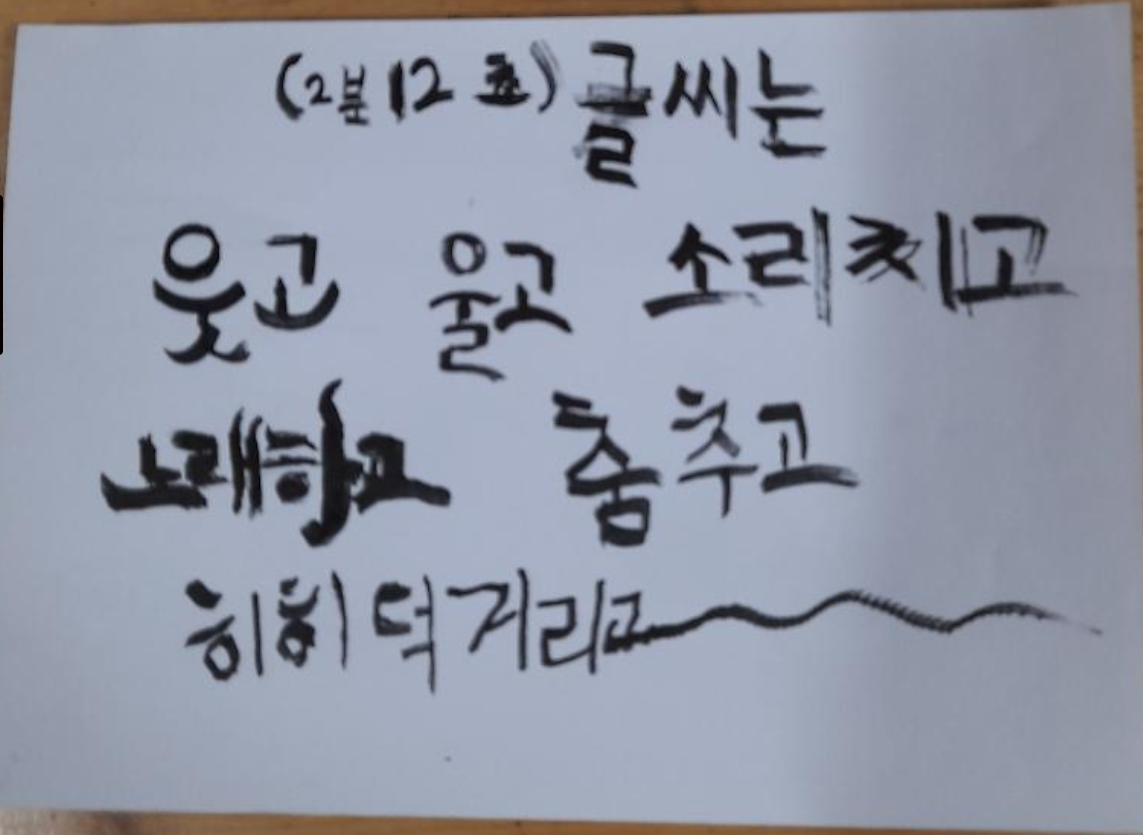 (2분12초) 글씨는
웃고 울고 소리치고
노래하고 춤추고
히히덕거리고